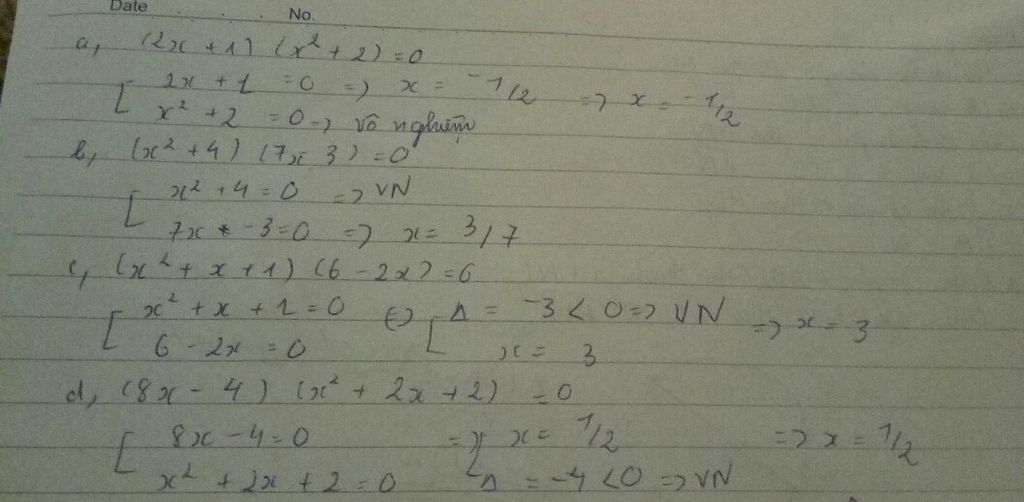 Date No.
a, (2x + 1) (x² + 2) = 0
[ 2x + 1 = 0 => x = -1/2 => x = -1/2
x² + 2 = 0 => vô nghiệm
b, (x² + 4) (7x - 3) = 0
[ x² + 4 = 0 => VN
7x - 3 = 0 => x = 3/7
c, (x² + x + 1) (6 - 2x) = 6
[ x² + x + 1 = 0 <=> [ Δ = -3 < 0 => VN => x = 3
6 - 2x = 0 x = 3
d, (8x - 4) (x² + 2x + 2) = 0
[ 8x - 4 = 0 => [ x = 1/2 => x = 1/2
x² + 2x + 2 = 0 Δ = -4 < 0 => VN